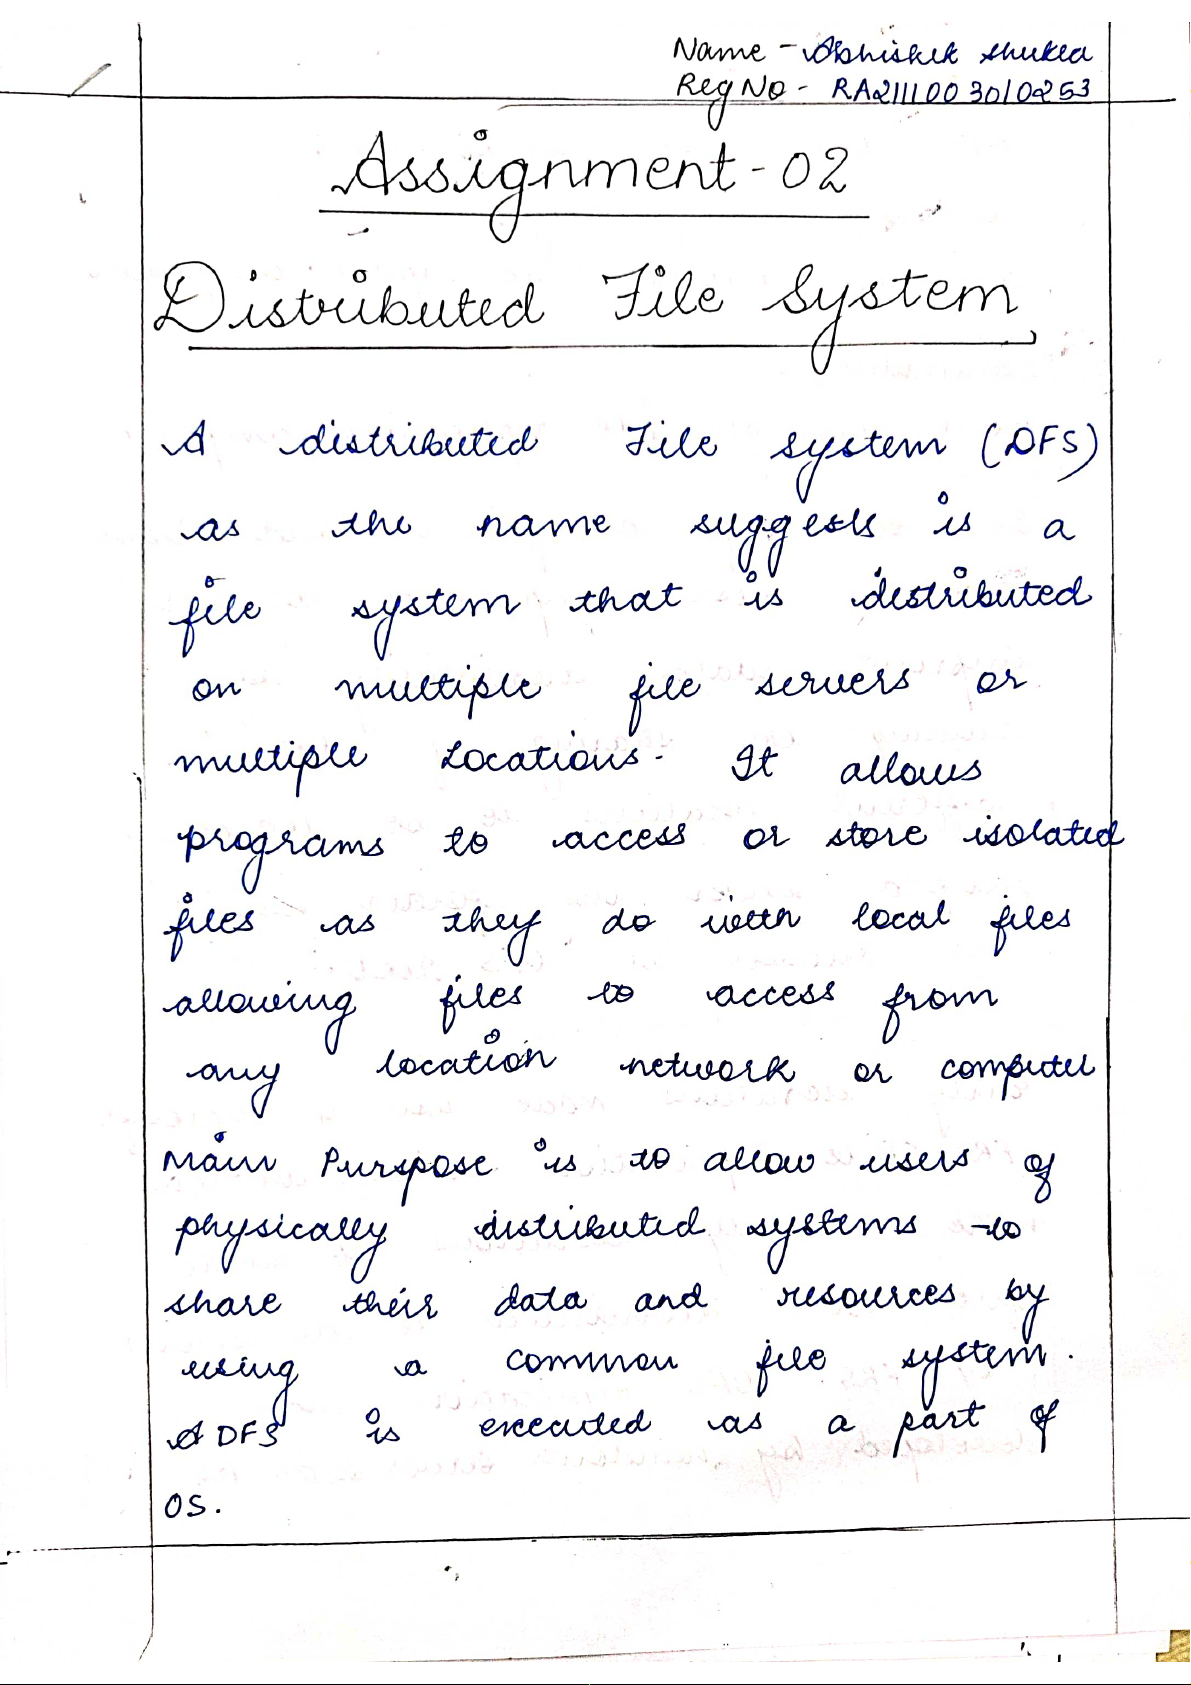 Name - Abhishek Shukla
Reg No - RA2111003010253
Assignment-02
Distributed File System
A distributed File system (DFS)
as the name suggests is a
file system that is distributed
on multiple file servers or
multiple Locations. It allows
programs to access or store isolated
files as they do with local files
allowing files to access from
any location network or computer
Main Purspose is to allow users of
physically distributed systems to
share their data and resources by
using a common file system.
A DFS is executed as a part of
OS.